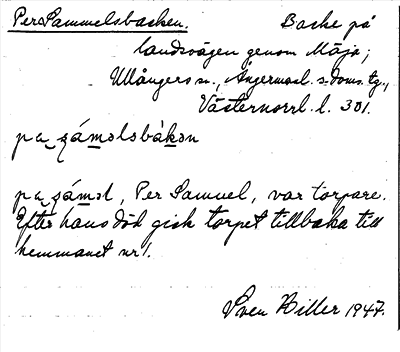 Per Sammelsbacken. Backe på
landsvägen genom Mäja;
Ullångers sn., Ångermanl. s. doms. tg.,
Västernorrl. l. 301.
pa sámolsbàkon
pa sámol, Per Samuel, var torpare.
Efter hans död gick torpet tillbaka till
hemmanet nr 1.
Sven Hiller 1947.